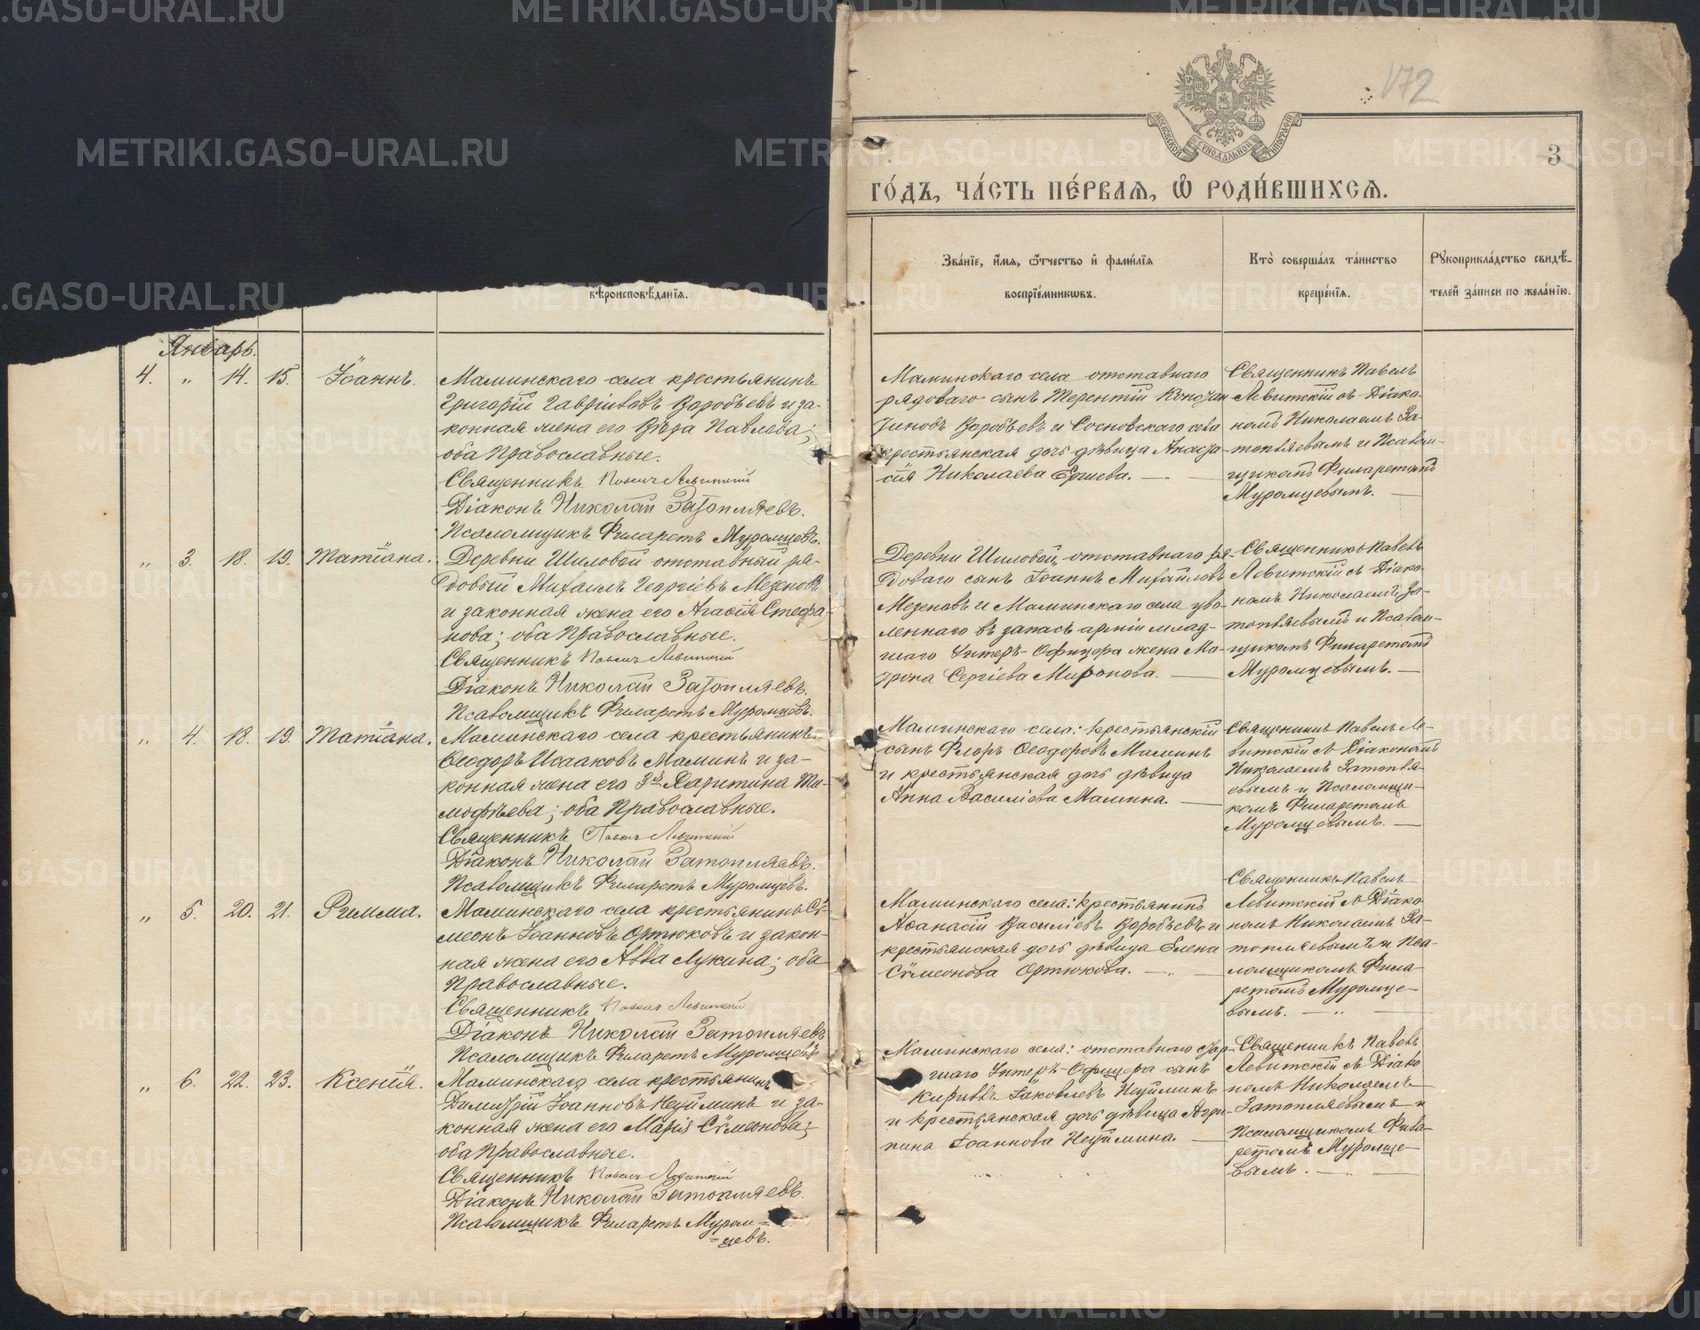 172
3
ГО́ДЪ, ЧА́СТЬ ПЕ́РВАѦ, Ѡ҆ РОДИ́ВШИХСѦ.
вѣроисповѣ́данїѧ.
Зва́нїе, и҆́мѧ, ѻ҆́тчество и҆ фами́лїѧ
воспрїе́мникѡвъ.
Кто̀ соверша́лъ та́инство
креще́нїѧ.
Рꙋкоприкла́дство свидѣ́-
телей за́писи по жела́нїю.
Январь.
4. " 14. 15. Іоаннъ.
Маминскаго села крестьянинъ
Григорій Гавріиловъ Воробьевъ и за-
конная жена его Вѣра Павлова;
оба православные.
Священникъ Павелъ Левитскій
Діаконъ Николай Затопляевъ.
Псаломщикъ Филаретъ Муромцевъ.
Маминскаго села отставнаго
рядоваго сынъ Терентій Констан
тиновъ Воробьевъ и Сосновскаго села
крестьянская дочь дѣвица Анаста-
сія Николаева
Священникъ Павелъ
Левитскій съ Діако-
номъ Николаемъ За-
топляевымъ и Псалом-
щикомъ Филаретомъ
Муромцевымъ.
" 3. 18. 19. Татіана.
Деревни Шиловой отставный ря-
довый Михаилъ Георгіевъ Мезеновъ
и законная жена его Агафія Стефа-
нова; оба православные.
Священникъ Павелъ Левитскій
Діаконъ Николай Затопляевъ.
Псаломщикъ Филаретъ Муромцевъ.
Деревни Шиловой, отставнаго ря-
доваго сынъ Іоаннъ Михайловъ
Мезеновъ и Маминскаго села уво-
леннаго въ запасъ арміи млад-
шаго Унтеръ-Офицера жена Ма-
трона Сергіева Миронова.
Священникъ Павелъ
Левитскій съ Діако-
номъ Николаемъ За-
топляевымъ и Псалом-
щикомъ Филаретомъ
Муромцевымъ.
" 4. 18. 19. Татіана.
Маминскаго села крестьянинъ
Ѳеодоръ Исааковъ Маминъ и за-
конная жена его Харитина Ти-
мофѣева; оба православные.
Священникъ Павелъ Левитскій
Діаконъ Николай Затопляевъ.
Псаломщикъ Филаретъ Муромцевъ.
Маминскаго села: крестьянскій
сынъ Флоръ Ѳеодоровъ Маминъ
и крестьянская дочь дѣвица
Анна Василіева Мамина.
Священникъ Павелъ Ле-
витскій съ Діакономъ
Николаемъ Затопля-
евымъ и Псаломщи-
комъ Филаретомъ
Муромцевымъ.
" 5. 20. 21. Римма.
Маминскаго села крестьянинъ Сѵ-
меонъ Іоанновъ Ортюковъ и закон-
ная жена его Лукина; оба
православные.
Священникъ Павелъ Левитскій
Діаконъ Николай Затопляевъ
Псаломщикъ Филаретъ Муромцевъ
Маминскаго села: крестьянинъ
Аѳанасій Василіевъ Воробьевъ и
крестьянская дочь дѣвица Елена
Сѵмеонова Ортюкова.
Священникъ Павелъ
Левитскій съ Діако-
номъ Николаемъ За-
топляевымъ и Пса-
ломщикомъ Фила-
ретомъ Муромце-
вымъ.
" 6. 22. 23. Ксенія.
Маминскаго села крестьянинъ
Димитрій Іоанновъ Неуйминъ и за-
конная жена его Марія Сѵмеонова;
оба православные.
Священникъ Павелъ Левитскій
Діаконъ Николай Затопляевъ.
Псаломщикъ Филаретъ Муром-
цевъ.
Маминскаго села: отставнаго стар-
шаго Унтеръ-Офицера сынъ
Кириллъ Іаковлевъ Неуйминъ
и крестьянская дочь дѣвица Агрип-
пина Іоаннова Неуймина.
Священникъ Павелъ
Левитскій съ Діако-
номъ Николаемъ
Затопляевымъ и
Псаломщикомъ Фила-
ретомъ Муромце-
вымъ.